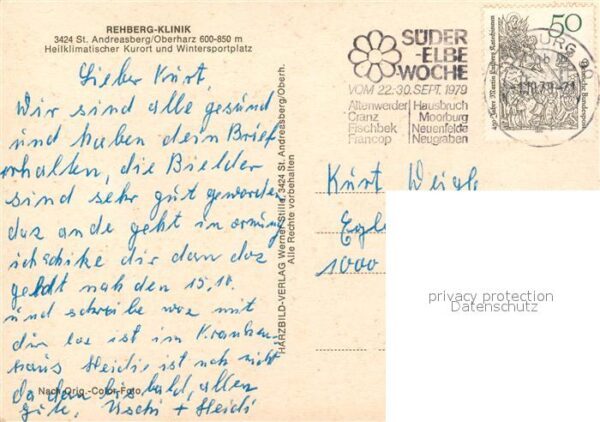 REHBERG-KLINIK
3424 St. Andreasberg/Oberharz 600-850 m
Heilklimatischer Kurort und Wintersportplatz
Lieber Kurt,
Wir sind alle gesund
und haben dein Brief
erhalten, die Bielder
sind sehr gut geworden
das ande geht in ornung
ich schike dir dan das
geldt nah den 15.10.
und schreibe was mit
dir los ist im Kranken-
haus Heidi ist noh nicht
da dan bis bald, allen
gute, Uschi + Heidi
Nach Orig.-Color-Foto
HARZBILD-VERLAG Werner Stille, 3424 St. Andreasberg/Oberh.
Alle Rechte vorbehalten
SÜDER
-ELBE
WOCHE
VOM 22.-30. SEPT. 1979
Altenwerder Hausbruch
Cranz Moorburg
Fischbek Neuenfelde
Francop Neugraben
50
450 Jahre Martin Luthers Katechismen
Deutsche Bundespost
Kurt
1000
privacy protection
Datenschutz